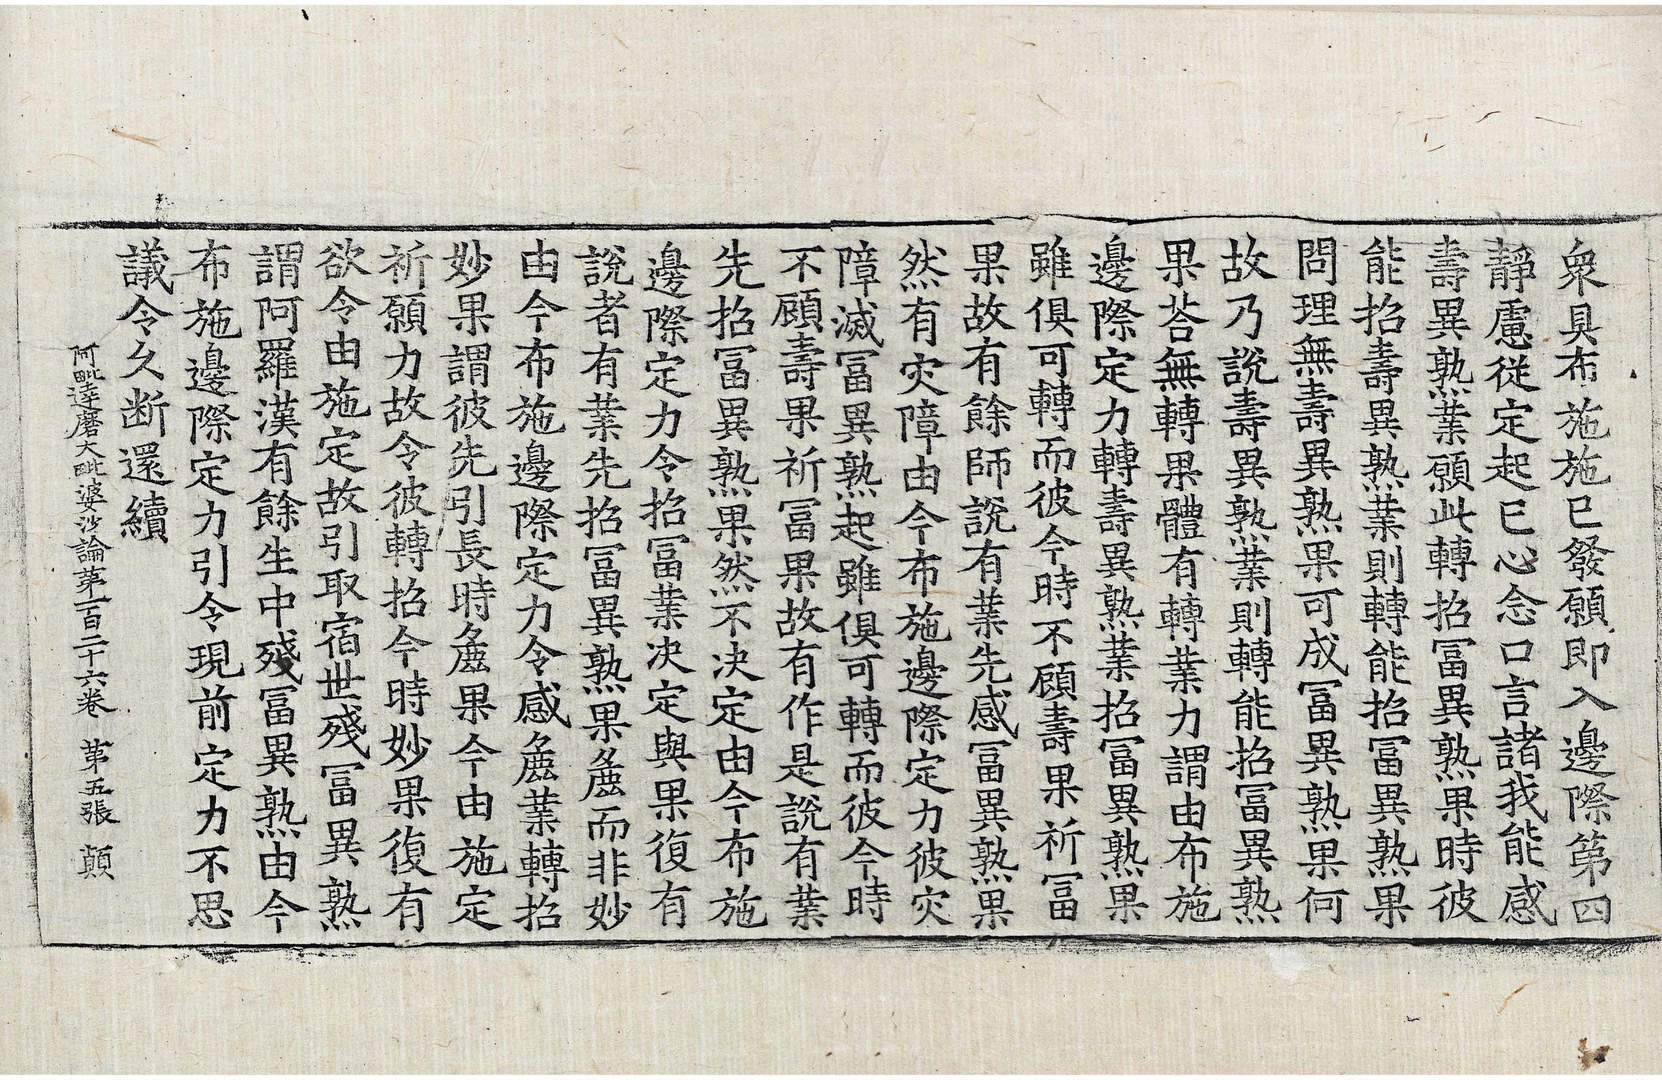 衆具布施施已發願即入邊際第四
靜慮從定起已心念口言諸我能感
壽異熟業願此轉招冨異熟果時彼
能招壽異熟業則轉能招冨異熟果
問理無壽異熟果可成冨異熟果何
故乃說壽異熟業則轉能招冨異熟
果荅無轉果體有轉業力謂由布施
邊際定力轉壽異熟業招冨異熟果
雖俱可轉而彼今時不顧壽果祈冨
果故有餘師說有業先感冨異熟果
然有灾障由今布施邊際定力彼灾
障滅冨異熟起雖俱可轉而彼今時
不顧壽果祈冨果故有作是說有業
先招冨異熟果然不决定由今布施
邊際定力令招冨業决定與果復有
說者有業先招冨異熟果麁而非妙
由今布施邊際定力令感麁業轉招
妙果謂彼先引長時麁果今由施定
祈願力故令彼轉招今時妙果復有
欲令由施定故引取宿世殘冨異熟
謂阿羅漢有餘生中殘冨異熟由今
布施邊際定力引令現前定力不思
議令久断還續
阿毗達磨大毗婆沙論第一百二十六卷 第五張 顛